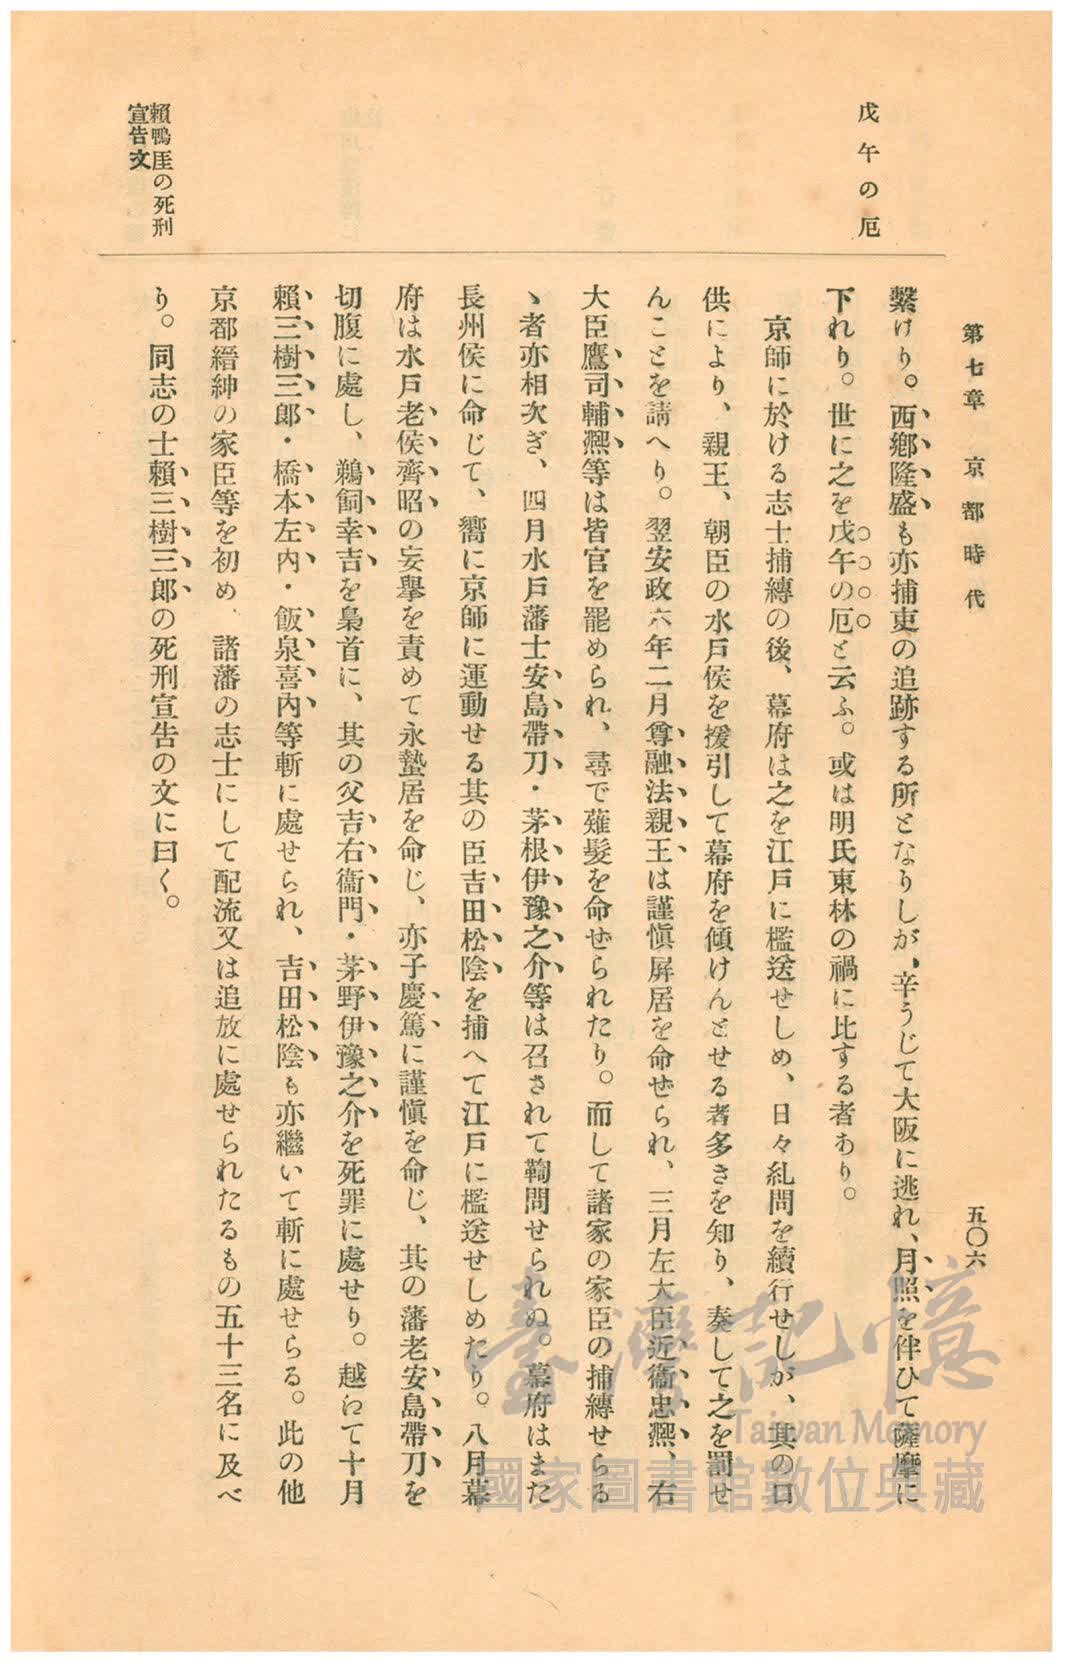 第七章 京都時代
五〇六
戊午の厄
賴鴨厓の死刑
宣告文
繫けり。西鄉隆盛も亦捕吏の追跡する所となりしが、辛うじて大阪に逃れ、月照を伴ひて薩摩に
下れり。世に之を戊午の厄と云ふ。或は明氏東林の禍に比する者あり。
京師に於ける志士捕縛の後、幕府は之を江戶に檻送せしめ、日々糺問を續行せしが、其の口
供により、親王、朝臣の水戶侯を援引して幕府を傾けんとせる者多きを知り、奏して之を罰せ
んことを請へり。翌安政六年二月尊融法親王は謹愼屛居を命ぜられ、三月左大臣近衞忠凞、右
大臣鷹司輔凞等は皆官を罷められ、尋で薙髮を命ぜられたり。而して諸家の家臣の捕縛せらる
ゝ者亦相次ぎ、四月水戶藩士安島帶刀・茅根伊豫之介等は召されて鞫問せられぬ。幕府はまた
長州侯に命じて、嚮に京師に運動せる其の臣吉田松陰を捕へて江戶に檻送せしめたり。八月幕
府は水戶老侯齊昭の妄擧を責めて永蟄居を命じ、亦子慶篤に謹愼を命じ、其の藩老安島帶刀を
切腹に處し、鵜飼幸吉を梟首に、其の父吉右衞門・茅野伊豫之介を死罪に處せり。越ねて十月
賴三樹三郞・橋本左內・飯泉喜內等斬に處せられ、吉田松陰も亦繼いて斬に處せらる。此の他
京都縉紳の家臣等を初め、諸藩の志士にして配流又は追放に處せられたるもの五十三名に及べ
り。同志の士賴三樹三郞の死刑宣告の文に曰く。
臺灣記憶
Taiwan Memory
國家圖書館數位典藏